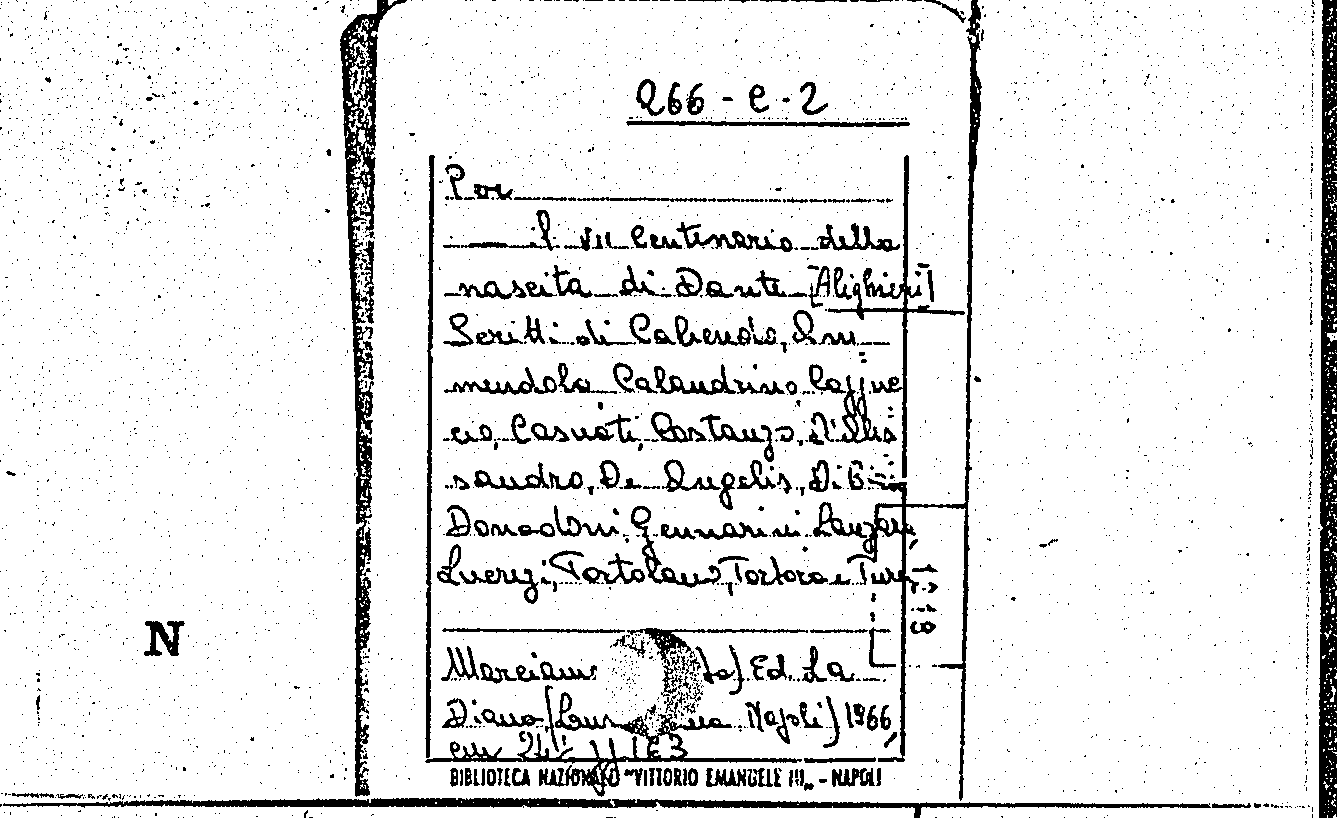 266 - C - 2
Per
il VII Centenario della
nascita di Dante [Alighieri]
Scritti di Caliendo, Im
mendola Calandrino, Cappuc
cio, Casnati, Costanzo, D'Ales
sandro, De Angelis, Di
Donadoni, Gennarini Lanzara,
Lucrezi, Tortolano, Tortora e
Ed. La
Diana Napoli] 1966,
cm
N
BIBLIOTECA NAZIONALE "VITTORIO EMANUELE III" - NAPOLI